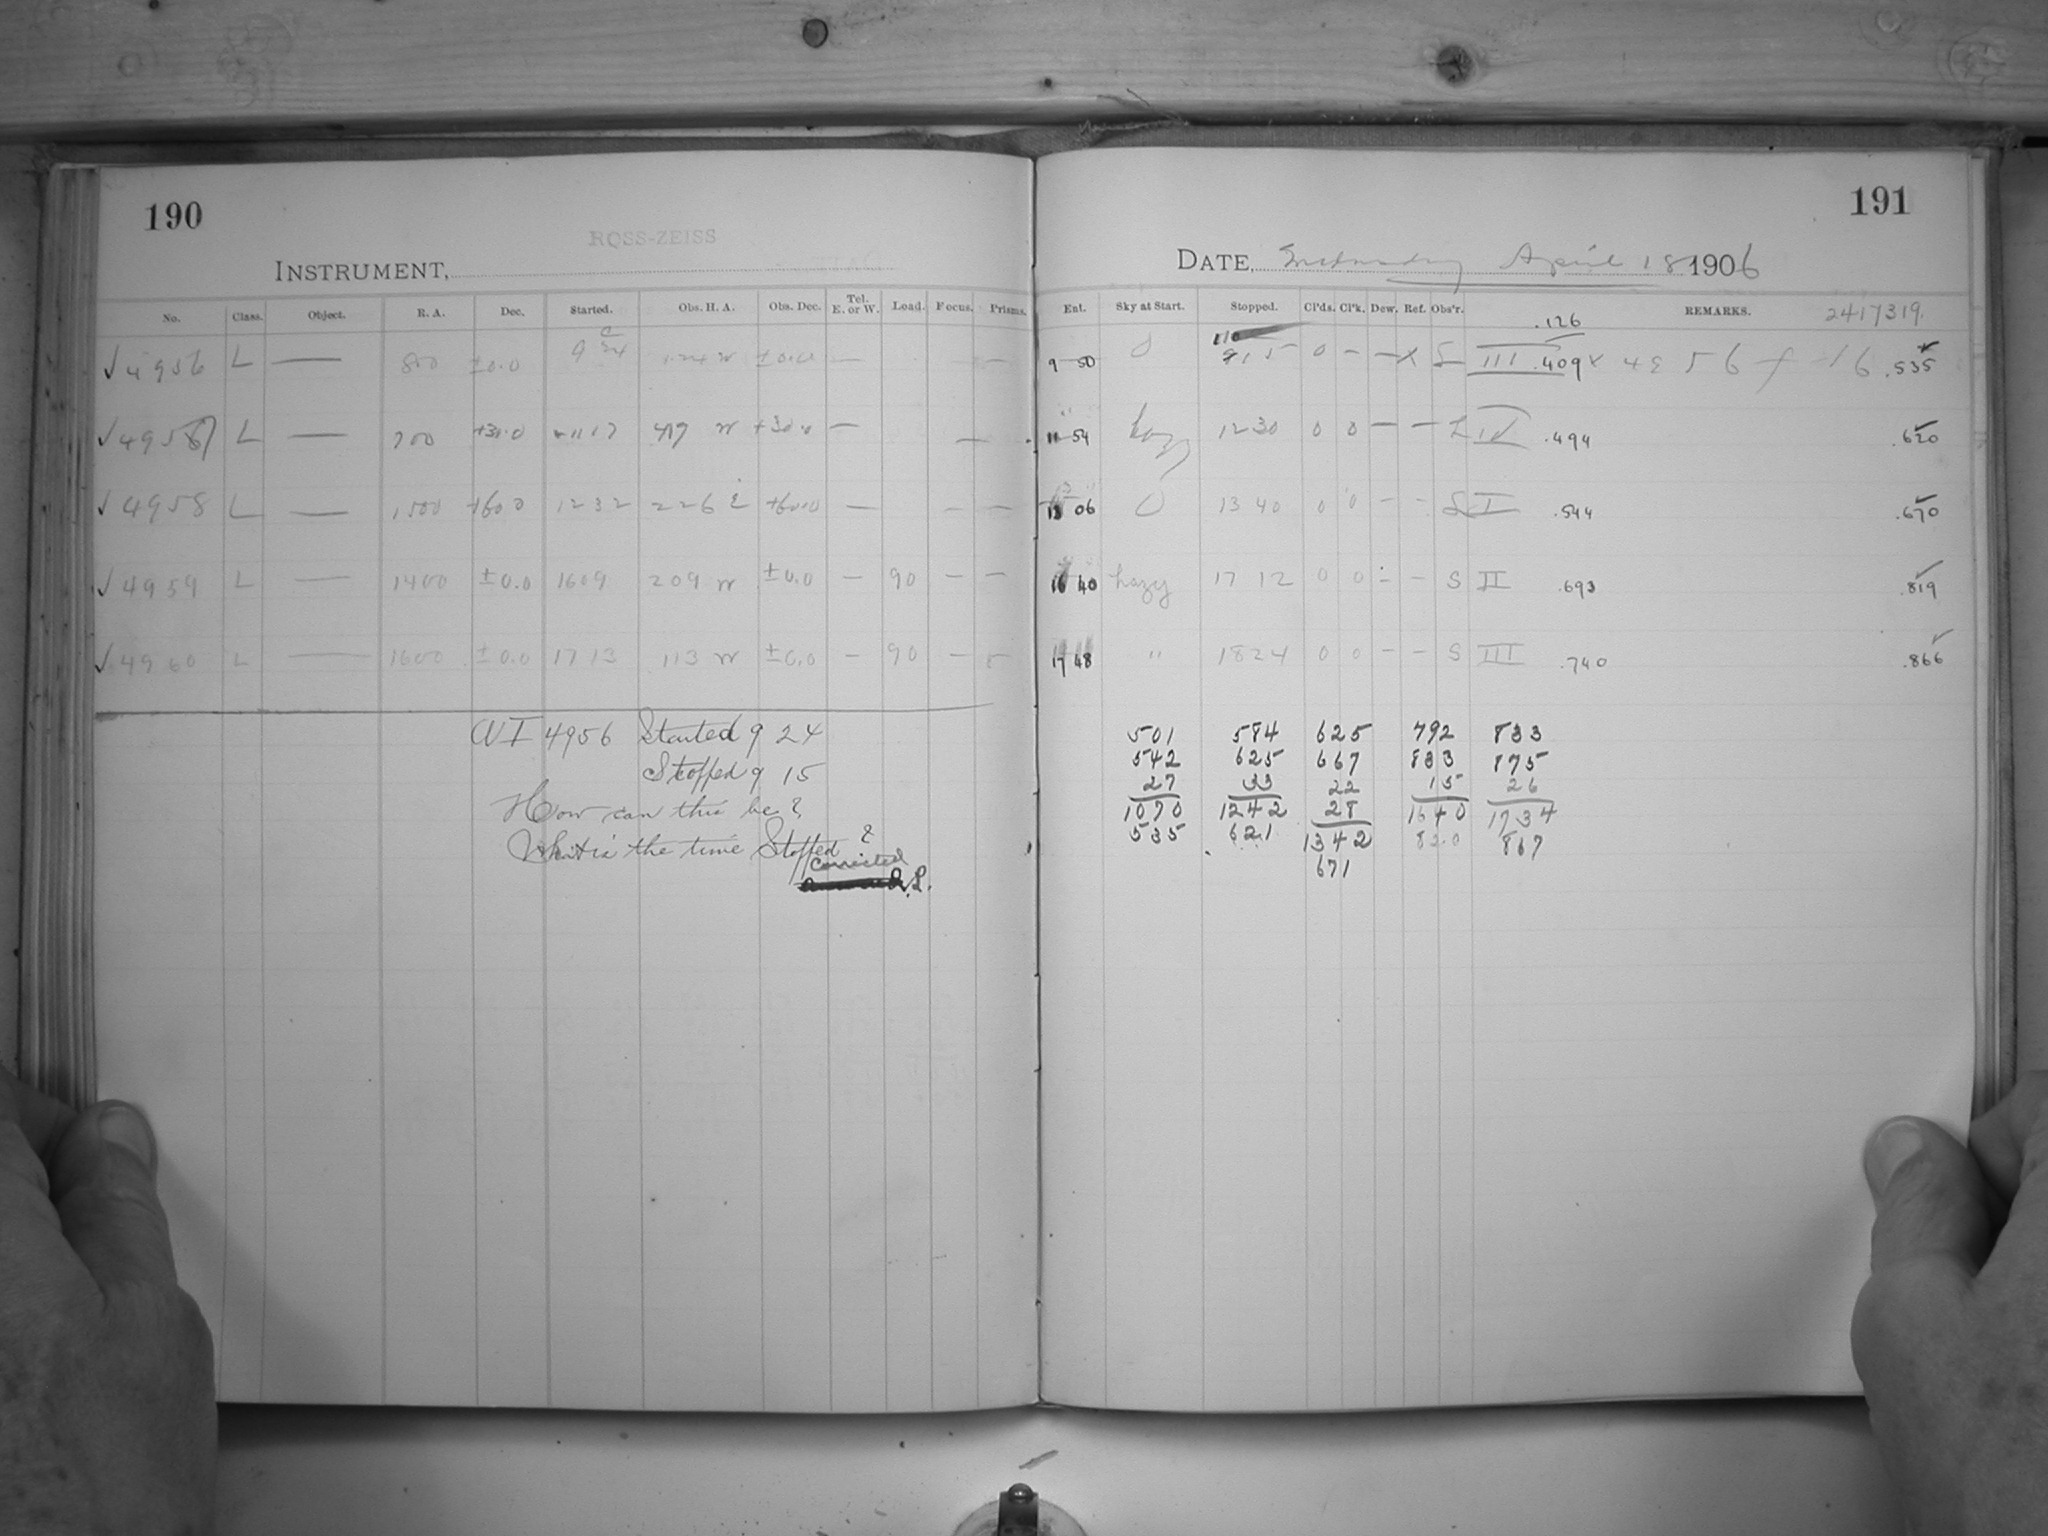 190
ROSS-ZEISS
INSTRUMENT,
No. Class. Object. R. A. Dec. Started. Obs. H. A. Obs. Dec. Tel. E. or W. Load. Focus. Prisms.
✓ 4956 L — 800 ±0.0 9 24 1 24 w ±0.0 — —
✓ 4957 L — 700 +30.0 1117 417 w +30.0 — —
✓ 4958 L — 1500 +60 0 1232 226 E +60.0 — — —
✓ 4959 L — 1400 ±0.0 1609 209 w ±0.0 — 90 — —
✓ 4960 L — 1600 ±0.0 1713 113 w ±0.0 — 90 —
4956 Started 9 24
Stopped 9 15
How can this be?
What is the time Stopped?
corrected
L.
191
DATE, Wednesday April 18 1906
Ent. Sky at Start. Stopped. Cl'ds. Cl'k. Dew. Ref. Obs'r. REMARKS. 2417319.
.126
9 50 0 915 0 — — III .409 4956 .535
11 54 hazy 1230 0 0 — — L IV .494 .620
06 0 1340 0 0 — — S I .544 .670
16 40 hazy 1712 0 0 — — S II .693 .819
17 48 " 1824 0 0 — — S III .740 .866
501 584 625 792 833
542 625 667 833 875
27 33 22 15 26
1070 1242 28 1640 1734
535 621 1342 820 867
671